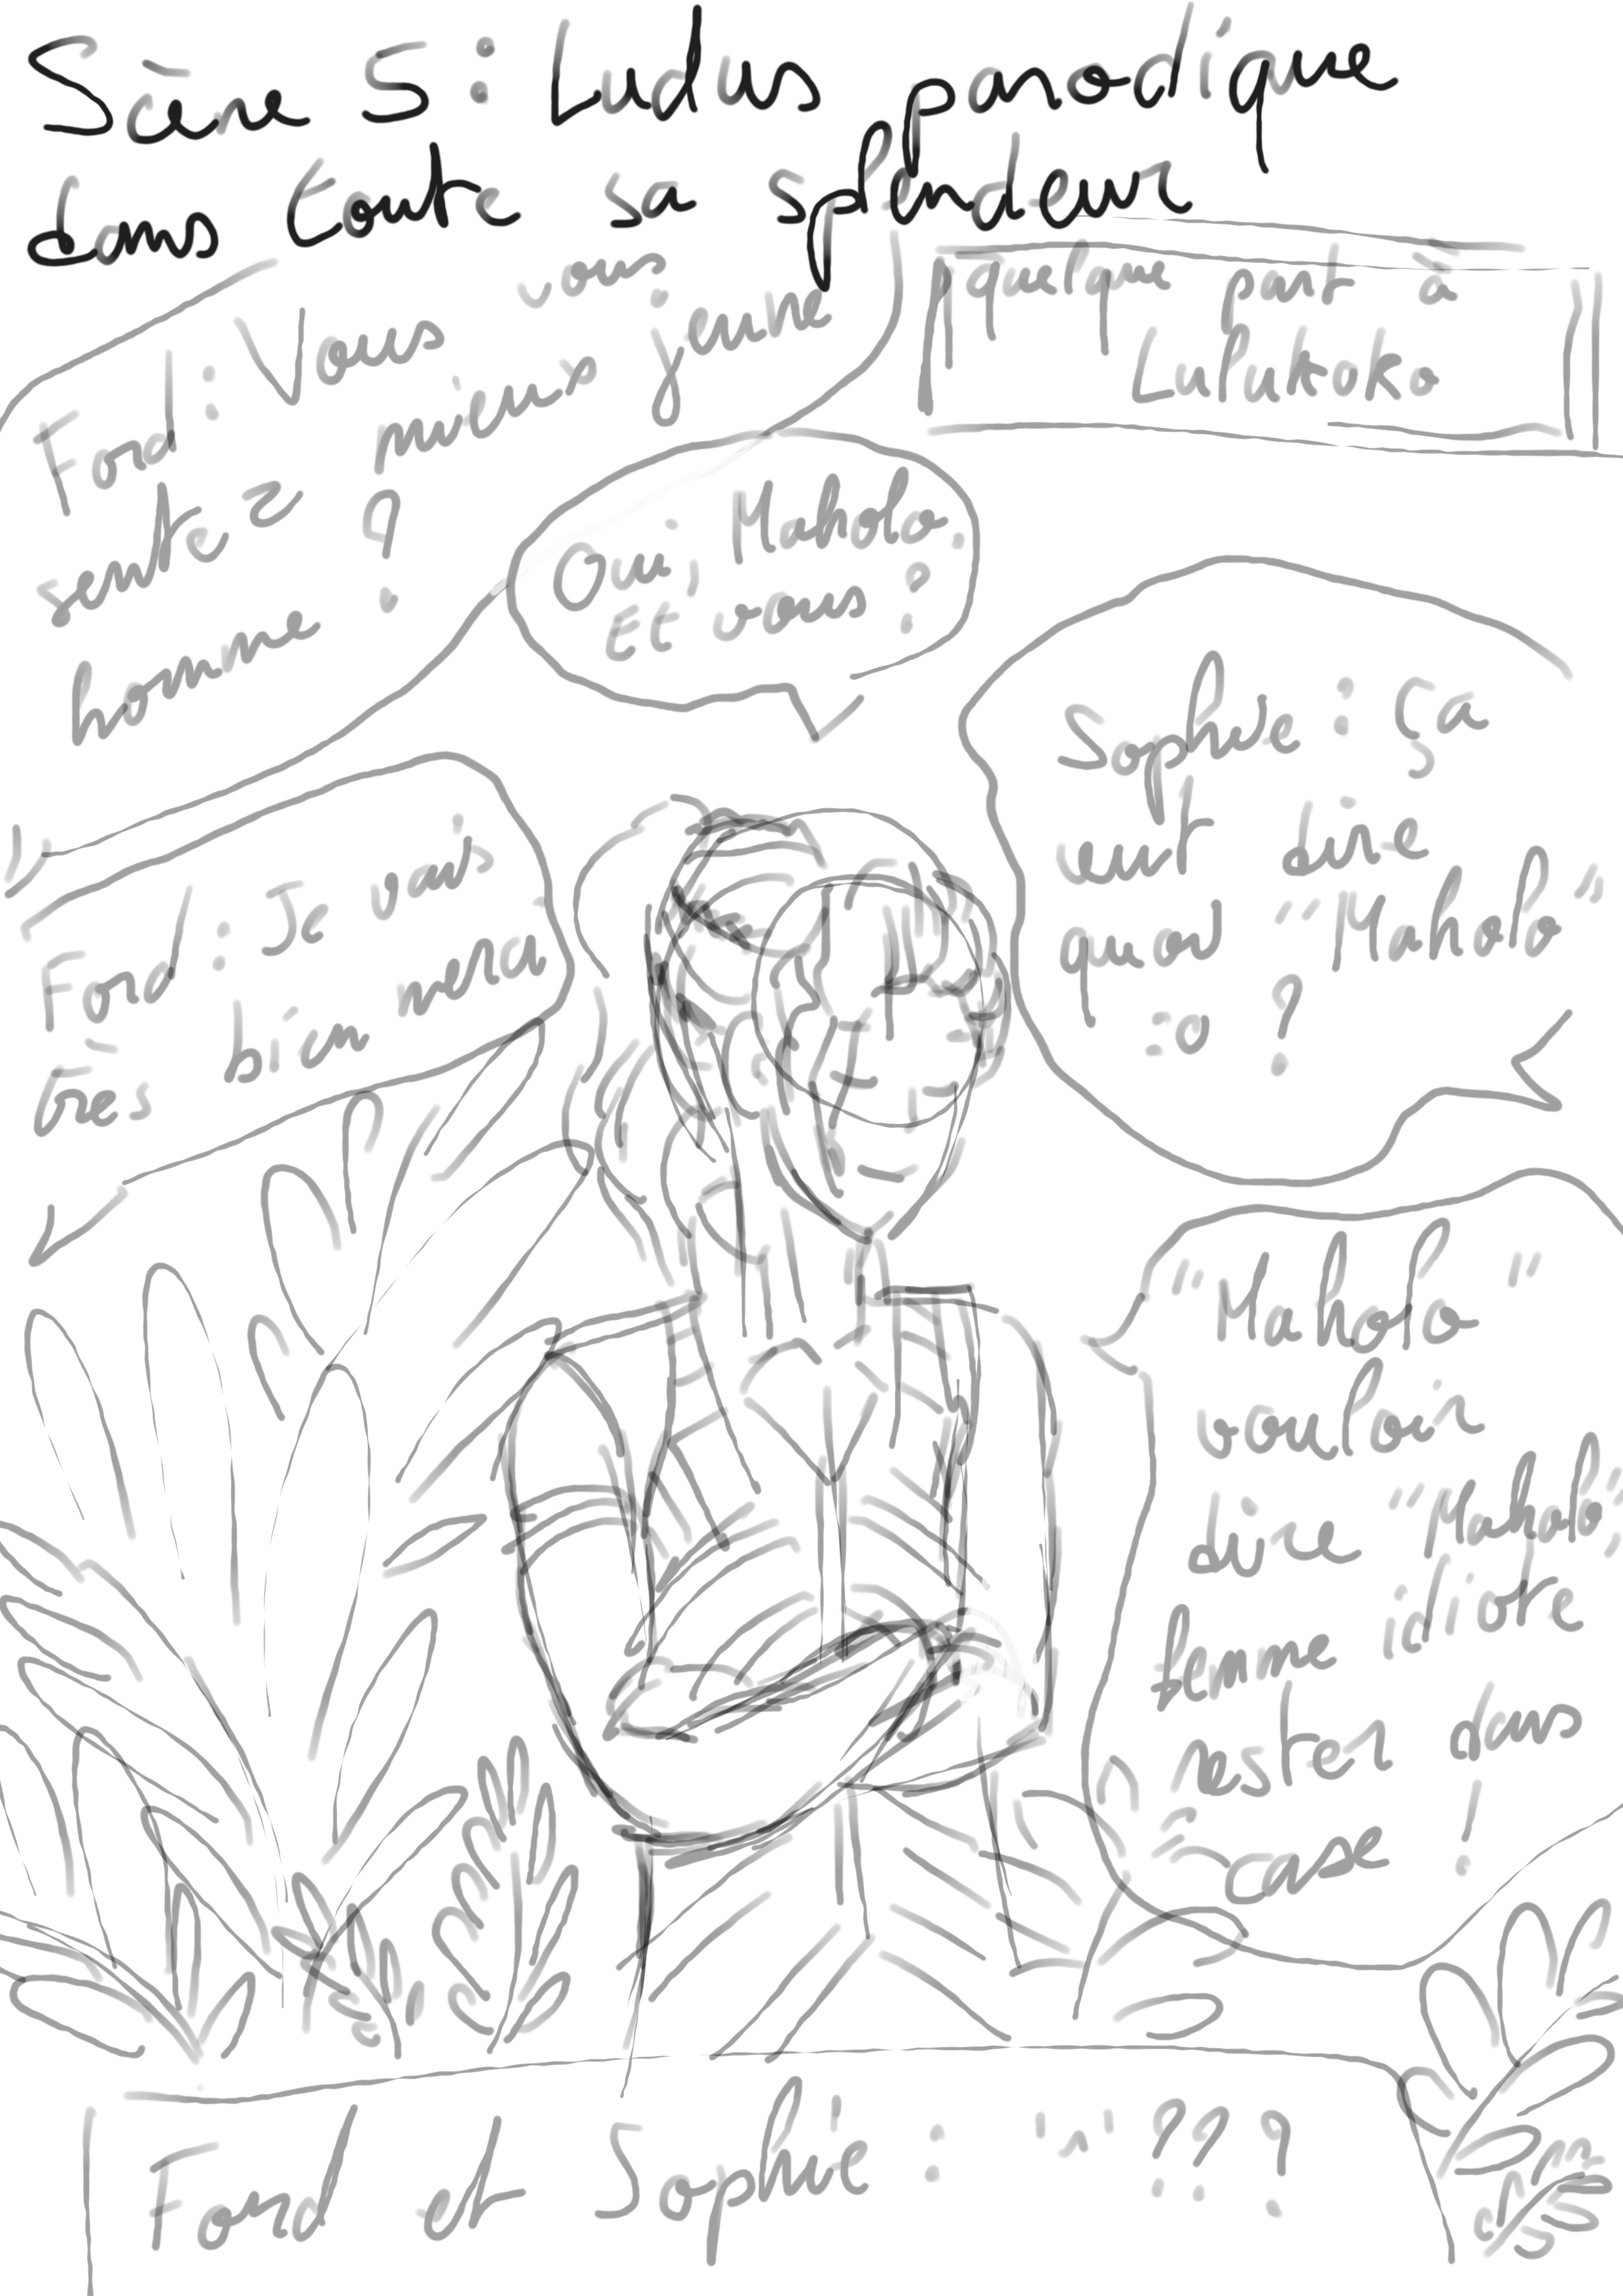 Scène 5 : Ludus parodique
dans toute sa splendeur
quelque part à
Lulukoko
Ford : Vous vous
sentez mieux jeune
homme ?
Oui, Maholo.
Et vous ?
Ford : Je vais
très bien merci.
Sophie : Ça
veut dire
quoi "Maholo"
:o ?
"Maholo"
vouloir
dire "Maholo",
femme idiote
rester dans
case !
Ford et Sophie : "^" ???